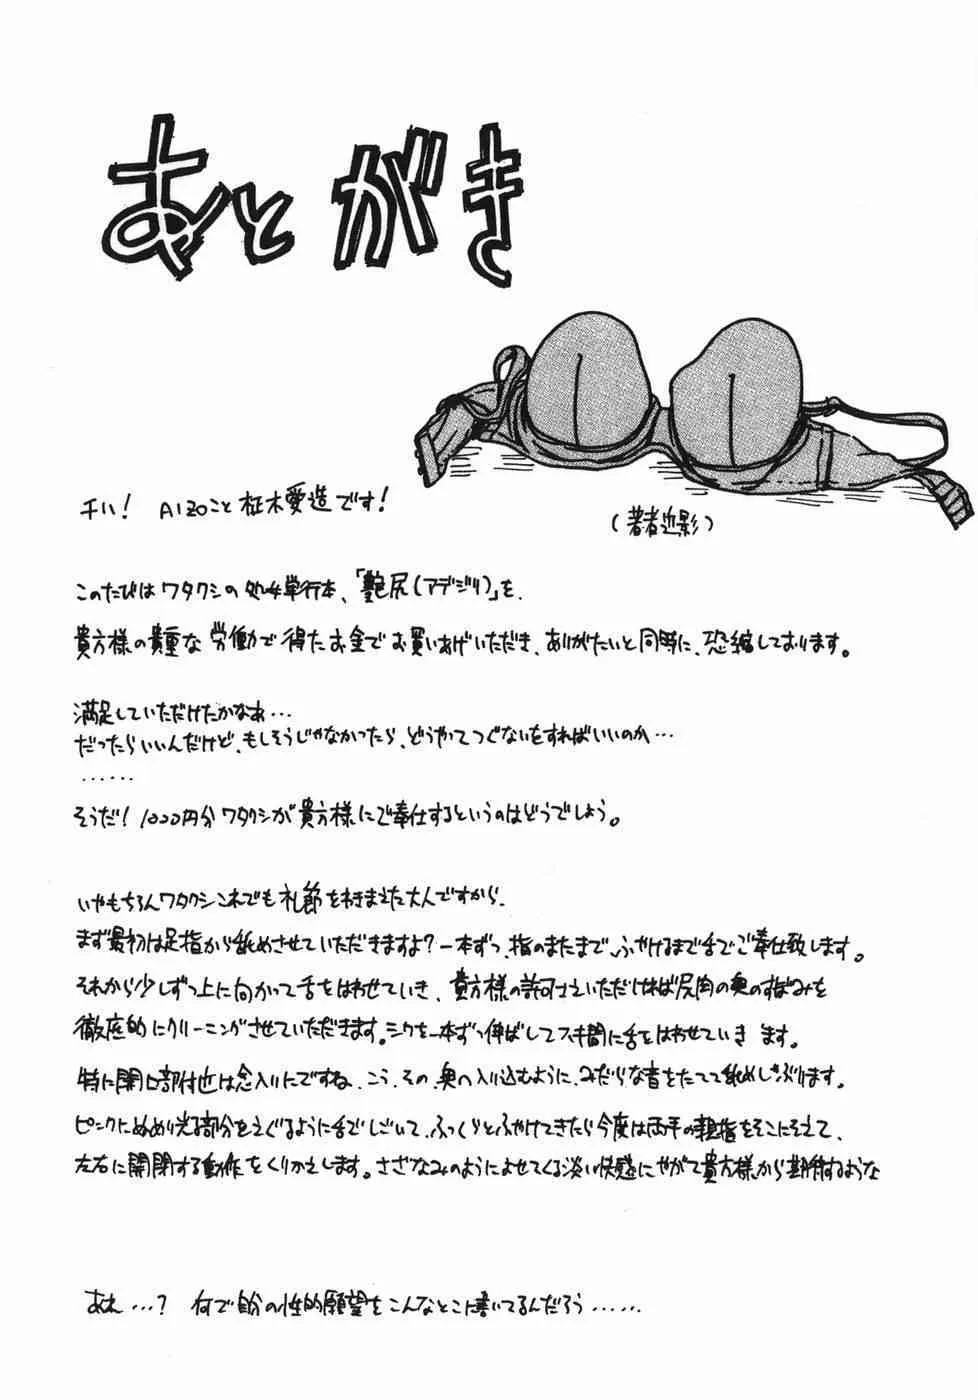 あとがき
チハ! AIZOこと柾木愛造です!
(著者近影)
このたびはワタクシの処女単行本、「艶尻(アデジリ)」を、
貴方様の貴重な労働で得たお金でお買いあげいただき、ありがたいと同時に、恐縮しております。
満足していただけたかなぁ…
だったらいいんだけど、もしそうじゃなかったら、どうやってつぐないをすればいいのか…
……
そうだ! 1000円分ワタクシが貴方様にご奉仕するというのはどうでしょう。
いやもちろんワタクシこれでも礼節をわきまえた大人ですから、
まず最初は足指から舐めさせていただきますよ?一本ずつ、指のまたまで、ふやけるまで舌でご奉仕致します。
それから少しずつ上に向かって舌をはわせていき、貴方様の許可さえいただければ尻肉の奥のすぼみを
徹底的にクリーニングさせていただきます。シワを一本ずつ伸ばしてスキ間に舌をはわせていきます。
特に開口部付近は念入りにですね、こう、その、奥へ入り込むように、みだらな音をたてて舐めしゃぶります。
ピンクにぬめり光る部分をえぐるように舌でしごいて、ふっくらとふやけてきたら今度は両手の親指をそこにそえて、
左右に開閉する動作をくりかえします。さざなみのようによせてくる淡い快感にやがて貴方様から期待するような
あれ…? 何で自分の性的願望をこんなとこに書いてるんだろう……